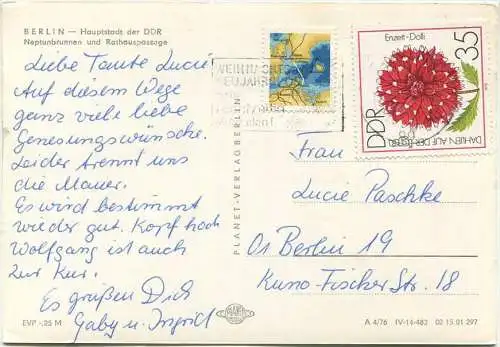 BERLIN — Hauptstadt der DDR
Neptunbrunnen und Rathauspassage
Liebe Tante Lucie
Auf diesem Wege
ganz viele liebe
Genesungswünsche.
Leider trennt uns
die Mauer.
Es wird bestimmt
wieder gut. Kopf hoch
Wolfgang ist auch
zur Kur.
Es grüßen Dich
Gaby u. Ingrid
EVP -.25 M
PLANET-VERLAG BERLIN
Enzett-Dolli
35
DDR
DAHLIEN AUF DER
Frau
Lucie Paschke
01 Berlin 19
Kuno-Fischer Str. 18
A 4/76 IV-14-483 02 15 01 297